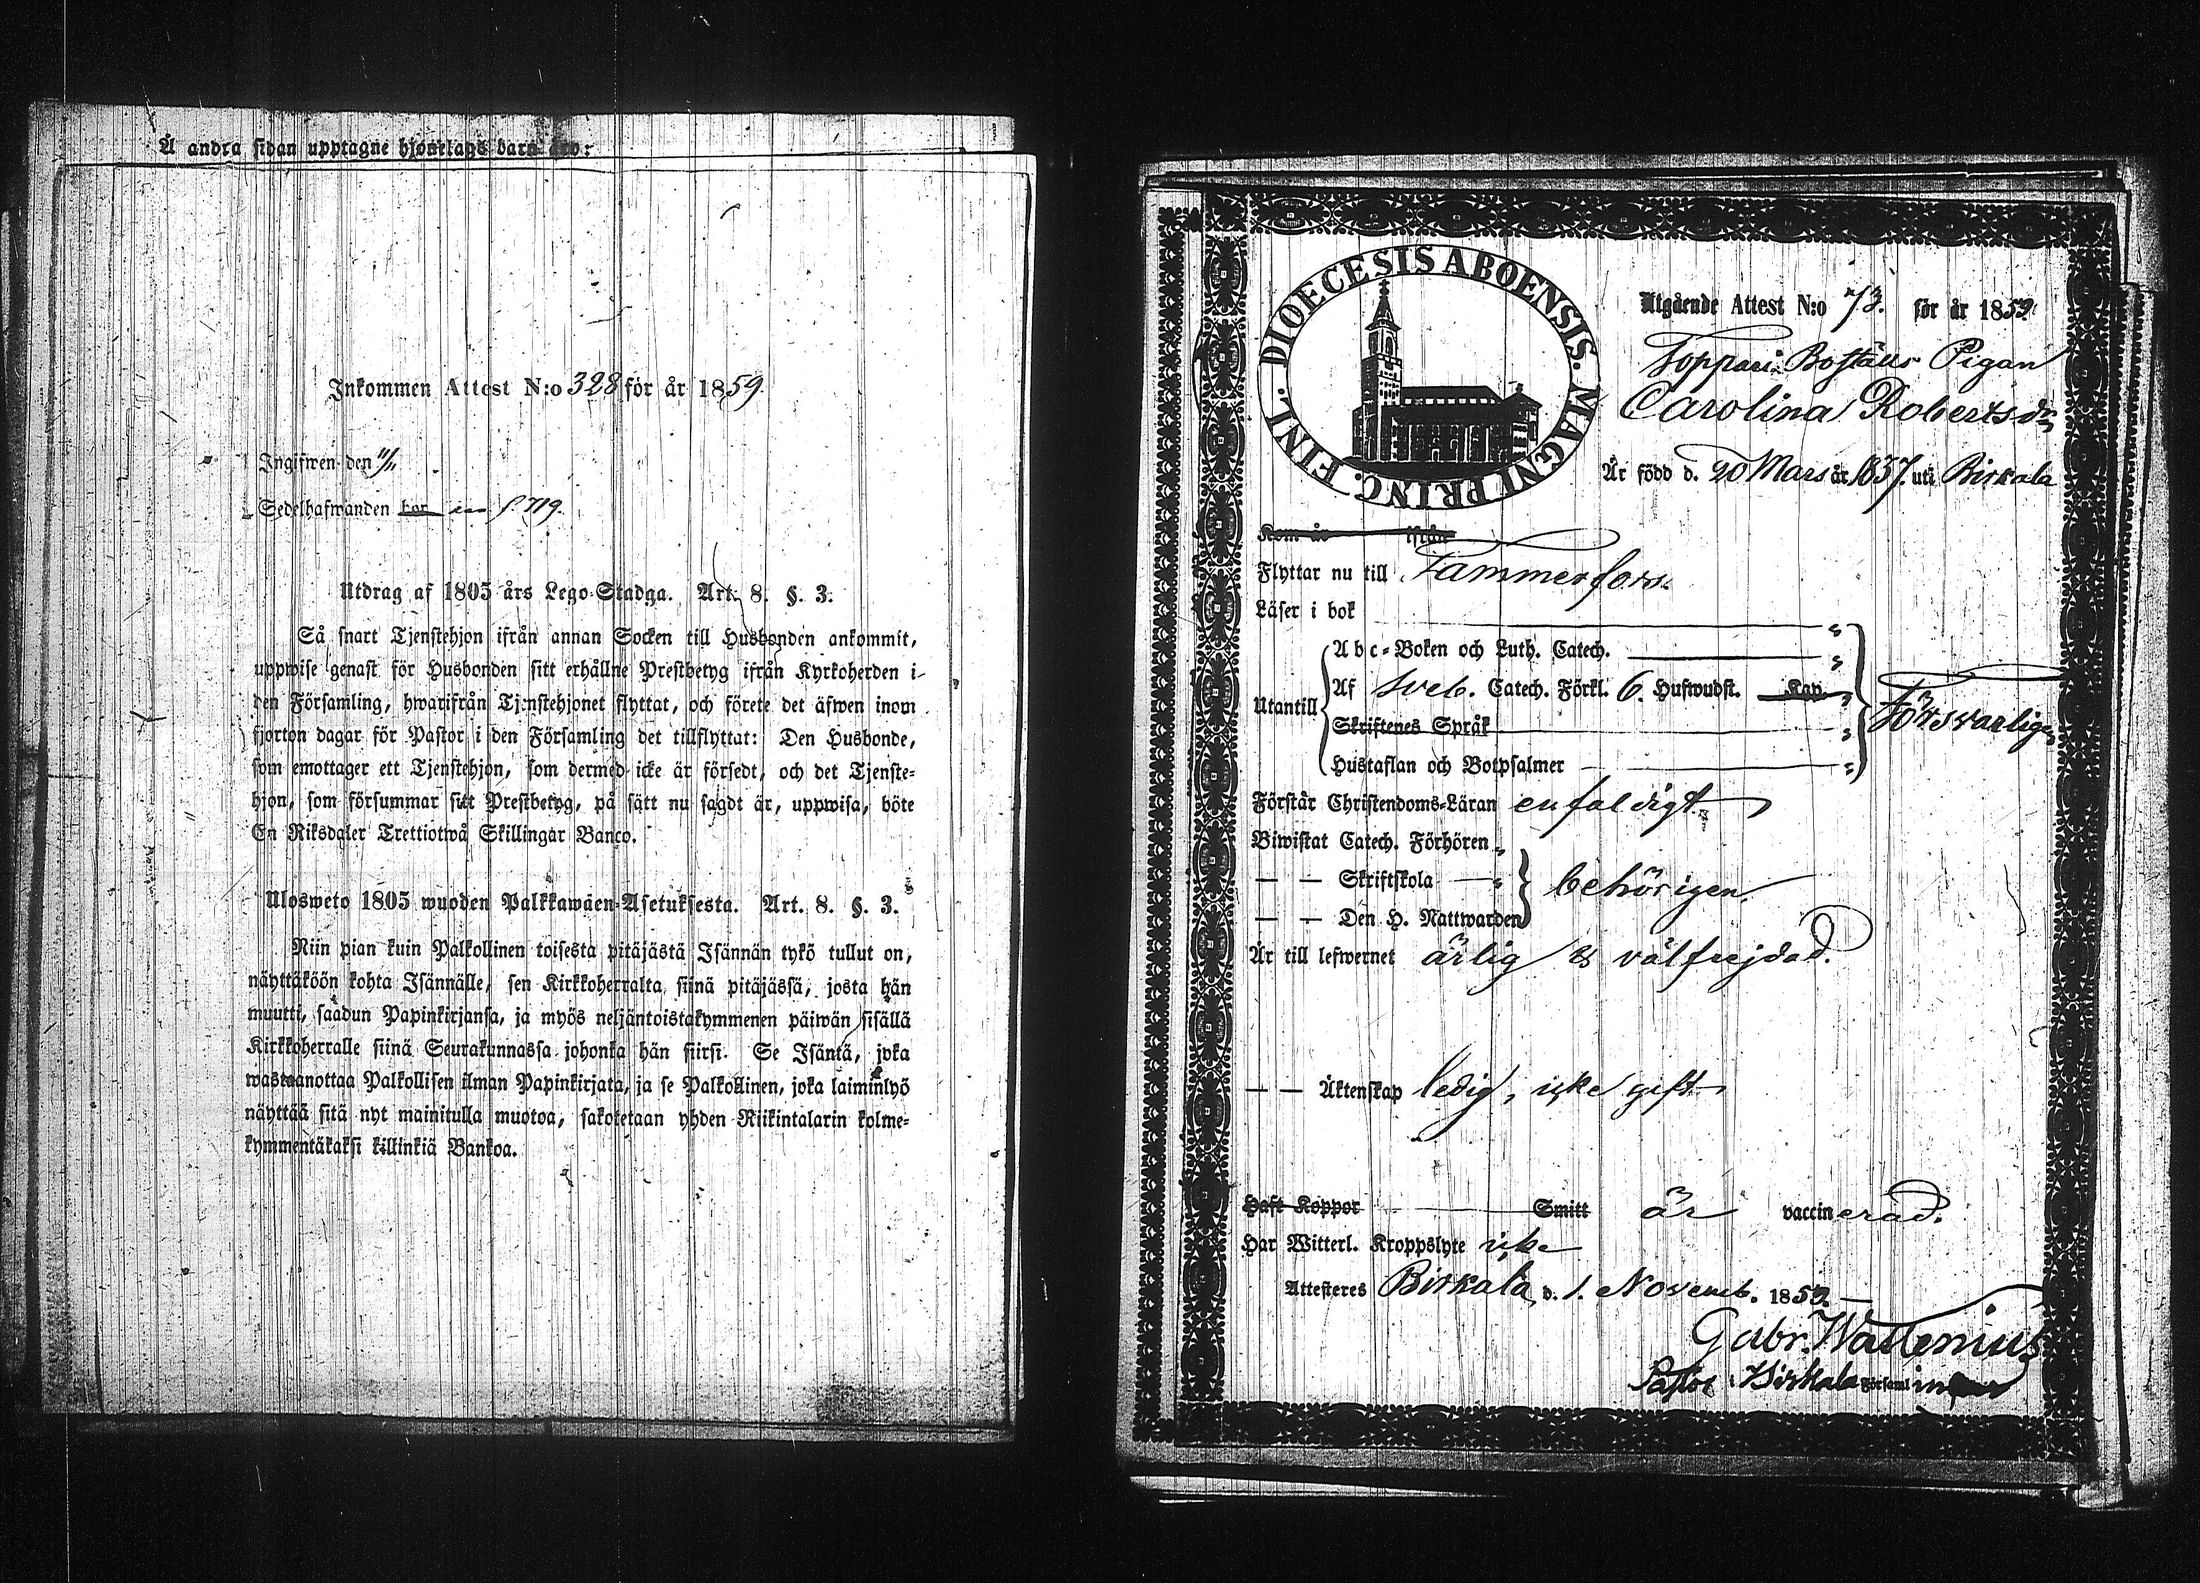 Å andra sidan upptagne hjonelags barn äro:
Inkommen Attest N:o 328 för år 1859.
Ingifwen den 11/11
Sedelhafwanden har in p. 719.
Utdrag af 1805 års Lego-Stadga. Art. 8. §. 3.
Så snart Tjenstehjon ifrån annan Socken till Husbonden ankommit,
uppwise genast för Husbonden sitt erhållne Prestbetyg ifrån Kyrkoherden i
den Församling, hwarifrån Tjenstehjonet flyttat, och förete det äfwen inom
fjorton dagar för Pastor i den Församling det tillflyttat: Den Husbonde,
som emottager ett Tjenstehjon, som dermed icke är försedt, och det Tjenste-
hjon, som försummar sitt Prestbetyg, på sätt nu sagdt är, uppwisa, böte
En Riksdaler Trettiotwå Skillingar Banco.
Ulosweto 1805 wuoden Palkkawäen-Asetuksesta. Art. 8. §. 3.
Niin pian kuin Palkollinen toisesta pitäjästä Isännän tykö tullut on,
näyttäköön kohta Isännälle, sen Kirkkoherralta siinä pitäjässä, josta hän
muutti, saadun Papinkirjansa, ja myös neljäntoistakymmenen päiwän sisällä
Kirkkoherralle siinä Seurakunnassa johonka hän siirsi. Se Isäntä, joka
wastaanottaa Palkollisen ilman Papinkirjata, ja se Palkollinen, joka laiminlyö
näyttää sitä nyt mainitulla muotoa, sakotetaan yhden Riikintalarin kolme-
kymmentäkaksi killinkiä Bankoa.
DIOECESIS ABOENSIS. MAGNI PRINC. FINL.
Utgående Attest N:o 73. för år 1859
Toppari Boställs Pigan
Carolina Robertsdr
Är född d. 20 Mars år 1837. uti Birkala
Kom år ifrån
Flyttar nu till Tammerfors.
Läser i bok
Abc-Boken och Luth. Catech.
Utantill Af Sveb. Catech. Förkl. 6. Hufwudst. Kap.
Skriftenes Språk
Hustaflan och Botpsalmer
Försvarligen
Förstår Christendoms-Läran enfaldigt.
Biwistat Catech. Förhören
— — Skriftskola — behörigen.
— — Den H. Nattwarden
Är till lefwernet ärlig & välfrejdad.
— — Äktenskap ledig, icke gift
Haft Koppor Smitt är vaccinerad.
Har Witterl. Kroppslyte icke
Attesteres Birkala, d. 1. Novemb. 1859.
Gabr. Wallenius
Pastor i Birkala Församl